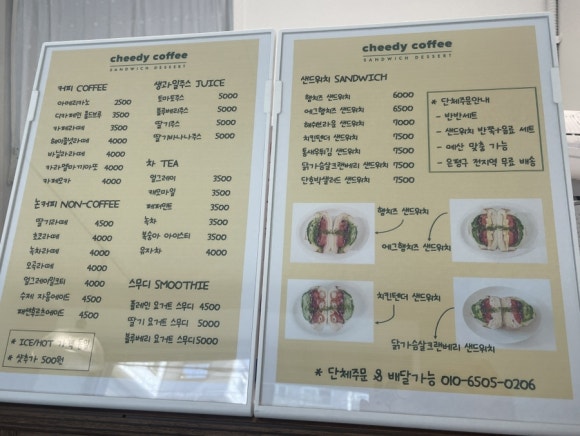 cheedy coffee
SANDWICH DESSERT
커피 COFFEE
아메리카노 2500
디카페인 콜드브루 3500
카페라떼 3500
헤이즐넛라떼 4000
바닐라라떼 4000
카라멜마끼아또 4000
카페모카 4000
논커피 NON-COFFEE
딸기라떼 4500
초코라떼 4000
녹차라떼 4000
오곡라떼 4000
얼그레이밀크티 4000
수제 자몽에이드 4500
패션후르츠에이드 4500
* ICE/HOT
* 샷추가 500원
생과일주스 JUICE
토마토주스 5000
블루베리주스 5000
딸기주스 5000
딸기바나나주스 5000
차 TEA
얼그레이 3500
캐모마일 3500
페퍼민트 3500
녹차 3500
복숭아 아이스티 3500
유자차 4000
스무디 SMOOTHIE
플레인 요거트 스무디 4500
딸기 요거트 스무디 5000
블루베리 요거트 스무디 5000
cheedy coffee
SANDWICH DESSERT
샌드위치 SANDWICH
햄치즈 샌드위치 6000
에그햄치즈 샌드위치 6500
해쉬브라운 샌드위치 7000
치킨텐더 샌드위치 7500
통새우튀김 샌드위치 7500
닭가슴살크랜베리 샌드위치 7500
단호박샐러드 샌드위치 7500
* 단체주문안내
- 반반세트
- 샌드위치 반쪽+음료 세트
- 예산 맞춤 가능
- 은평구 전지역 무료 배송
햄치즈 샌드위치
에그햄치즈 샌드위치
치킨텐더 샌드위치
닭가슴살크랜베리 샌드위치
* 단체주문 & 배달가능 010-6505-0206